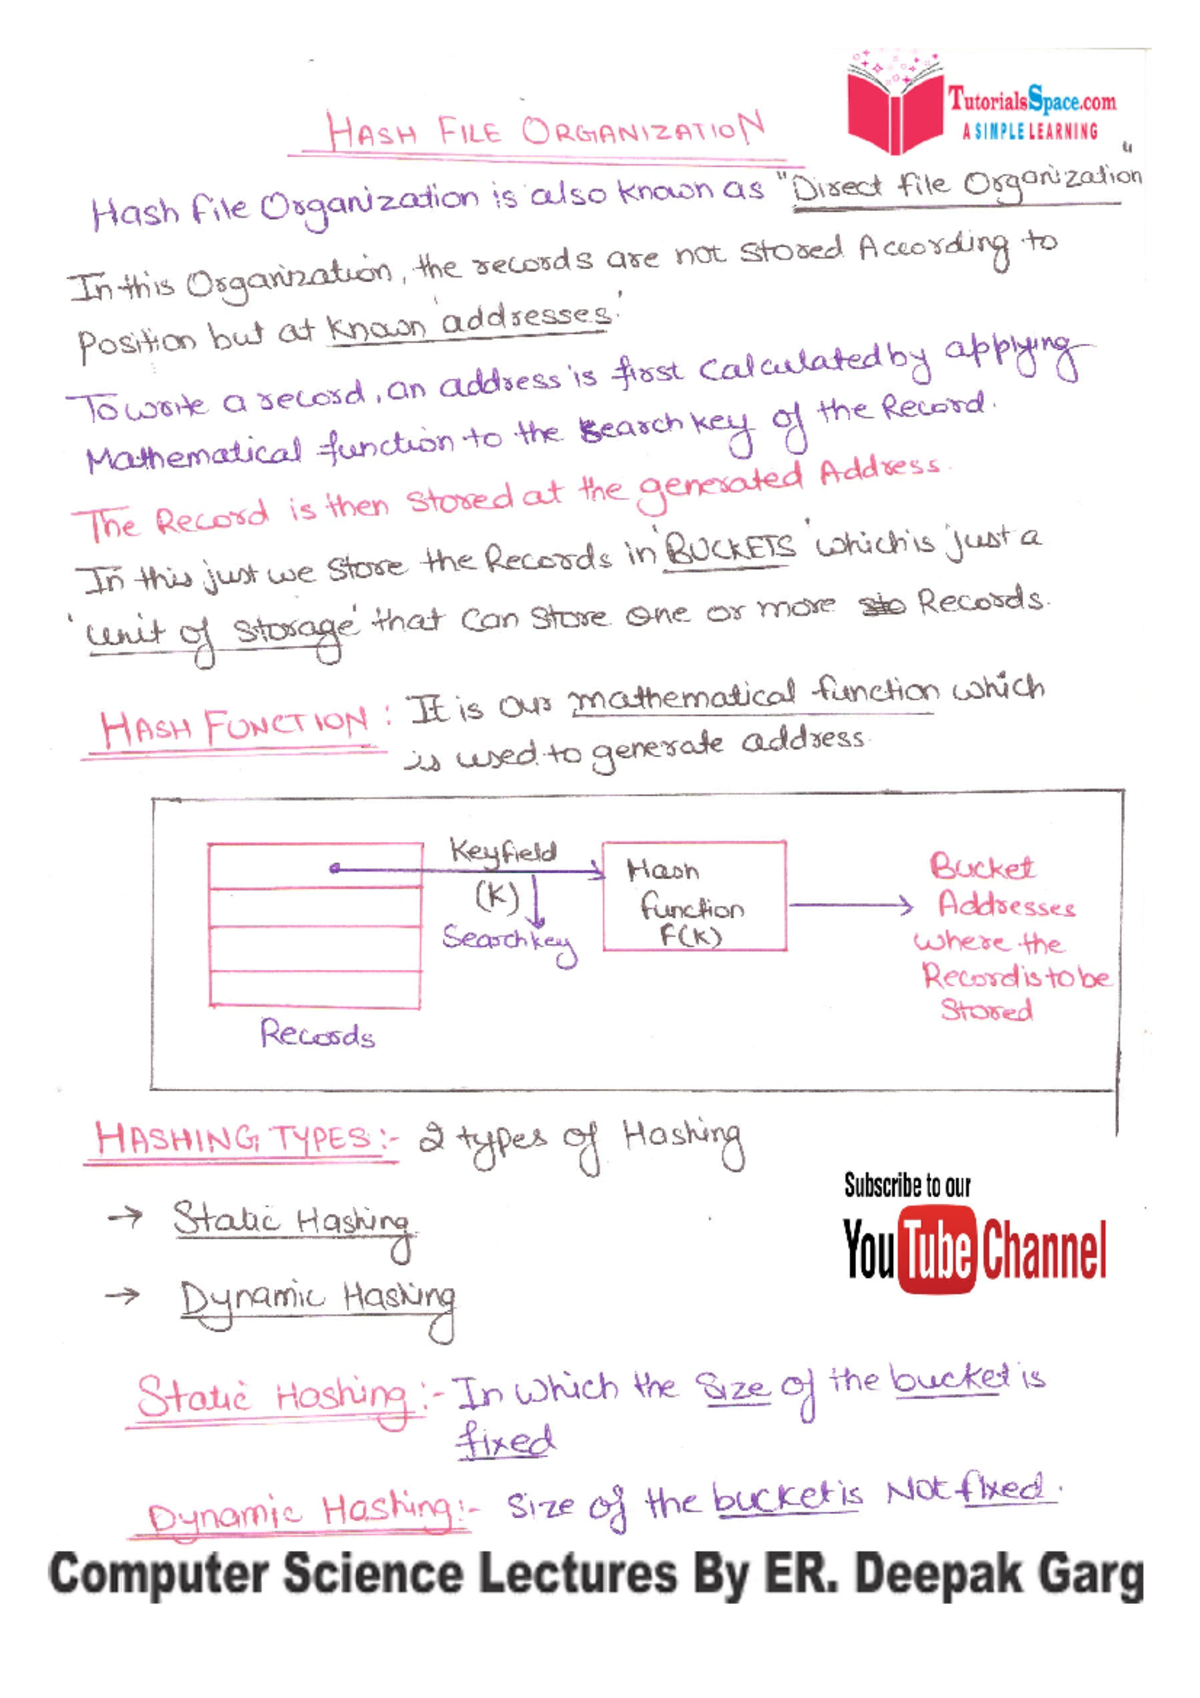 TutorialsSpace.com
A SIMPLE LEARNING
HASH FILE ORGANIZATION
Hash File Organization is also known as "Direct file Organization"
In this Organization, the records are not stored According to
Position but at known 'addresses'
To write a record, an address is first calculated by applying
Mathematical function to the Search key of the Record.
The Record is then Stored at the generated Address.
In this just we store the Records in 'BUCKETS' which is just a
'unit of storage' that can store one or more Records.
HASH FUNCTION: It is our mathematical function which
is used to generate address.
Keyfield
(K)
Searchkey
Records
Hash
function
F(K)
Bucket
Addresses
where the
Record is to be
Stored
HASHING TYPES:- 2 types of Hashing
→ Static Hashing
→ Dynamic Hashing
Subscribe to our
YouTube Channel
Static Hashing:- In which the Size of the bucket is
fixed
Dynamic Hashing:- Size of the bucket is Not fixed.
Computer Science Lectures By ER. Deepak Garg